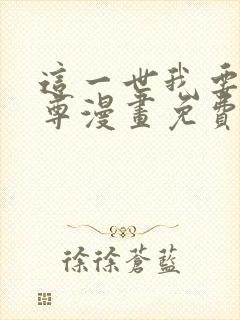 這一世我要
尊漫畫免費
徐徐蒼藍